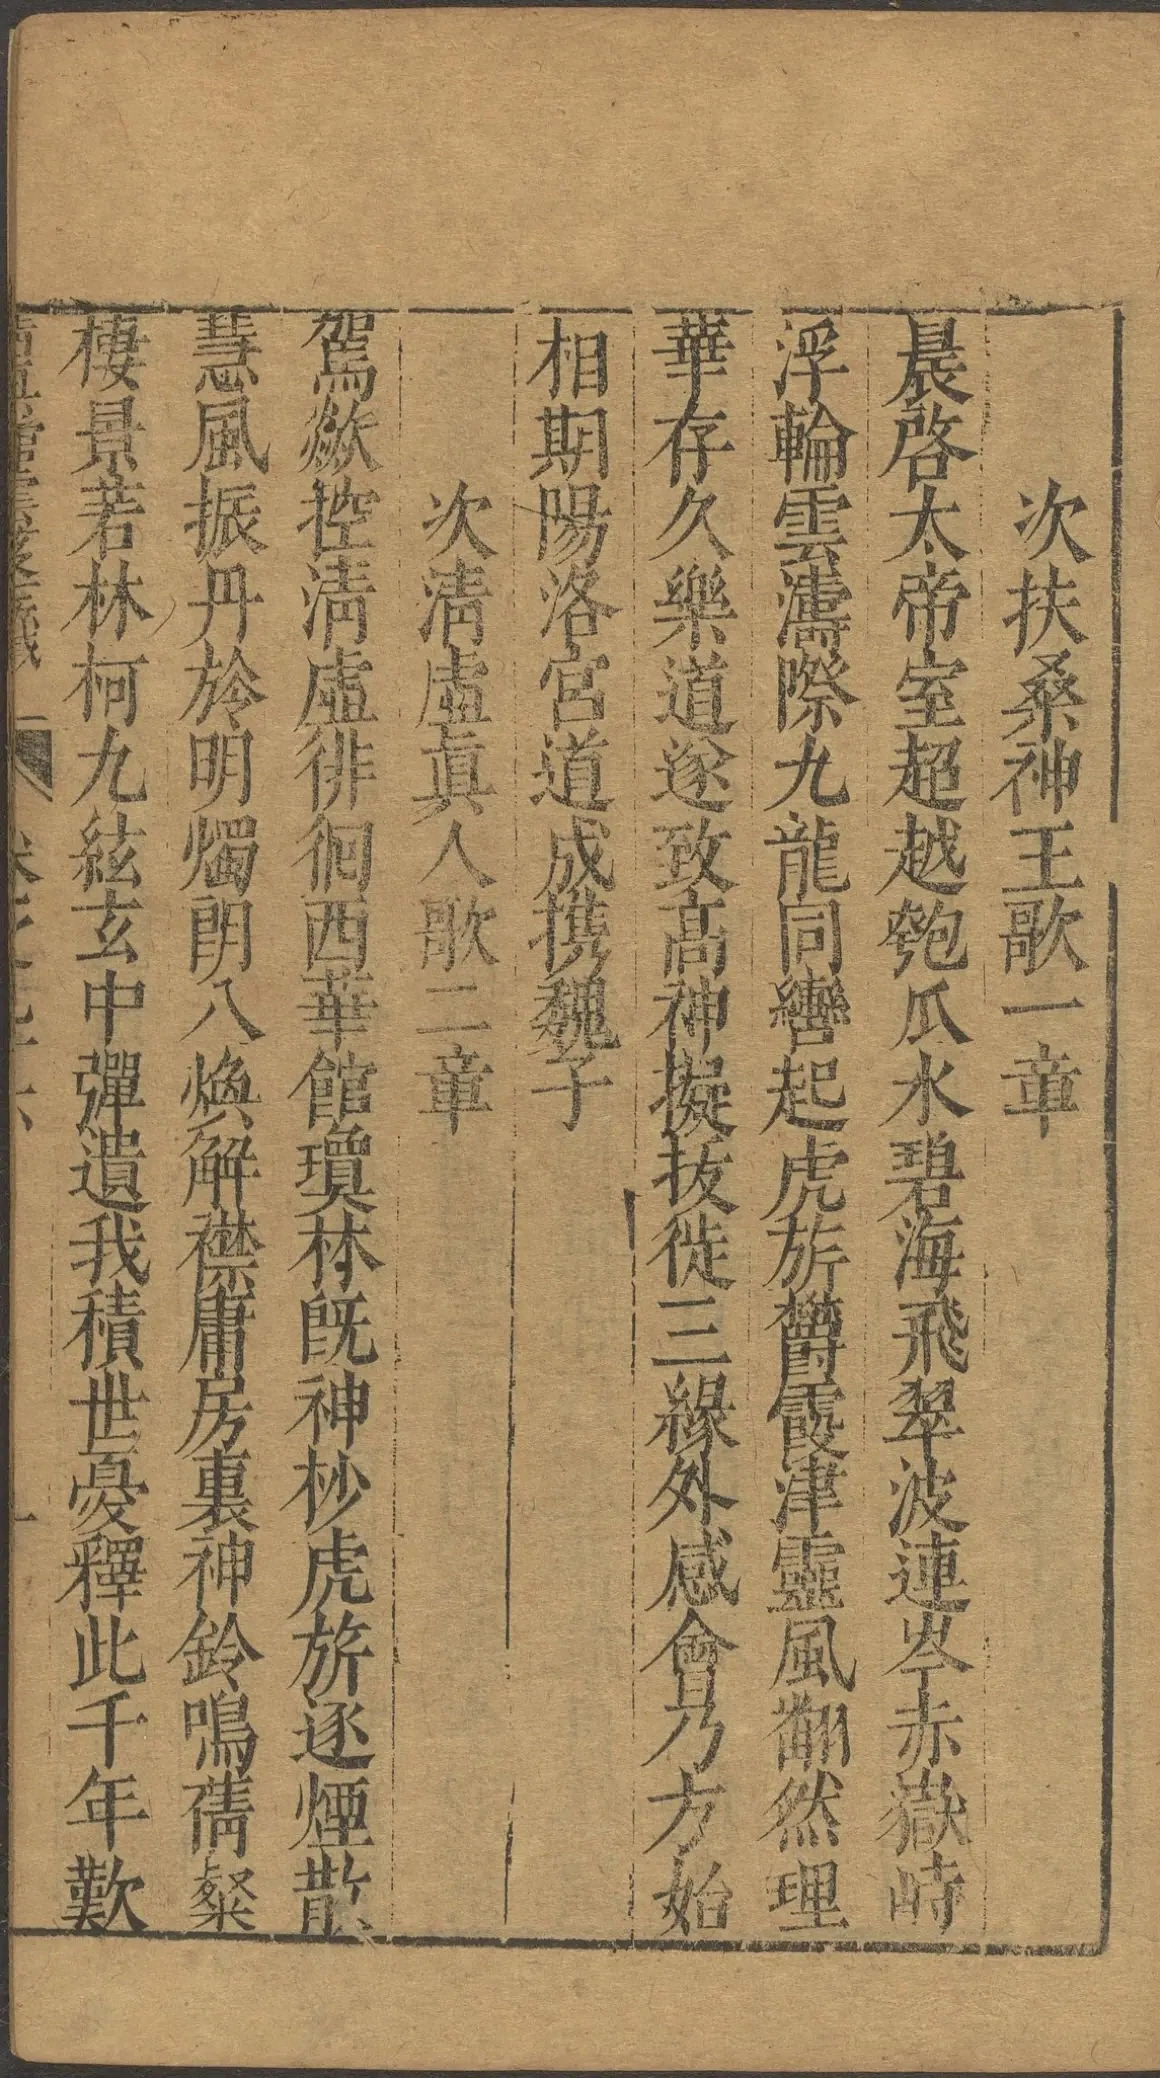 次扶桑神王歌一章
晨啓太帝室超越匏瓜水碧海飛翠波連岑赤嶽峙
浮輪雲濤際九龍同轡起虎旂欝霞津靈風翻然理
華存久樂道遂致高神擬拔徙三緣外感會乃方始
相期陽洛宮道成携魏子
次淸虛眞人歌二章
駕欻控淸虛徘徊西華館瓊林旣神杪虎旂逐煙散
慧風振丹旍明燭朗八煥解襟庸房裏神鈴鳴蒨粲
棲景若林柯九絃玄中彈遺我積世憂釋此千年歎